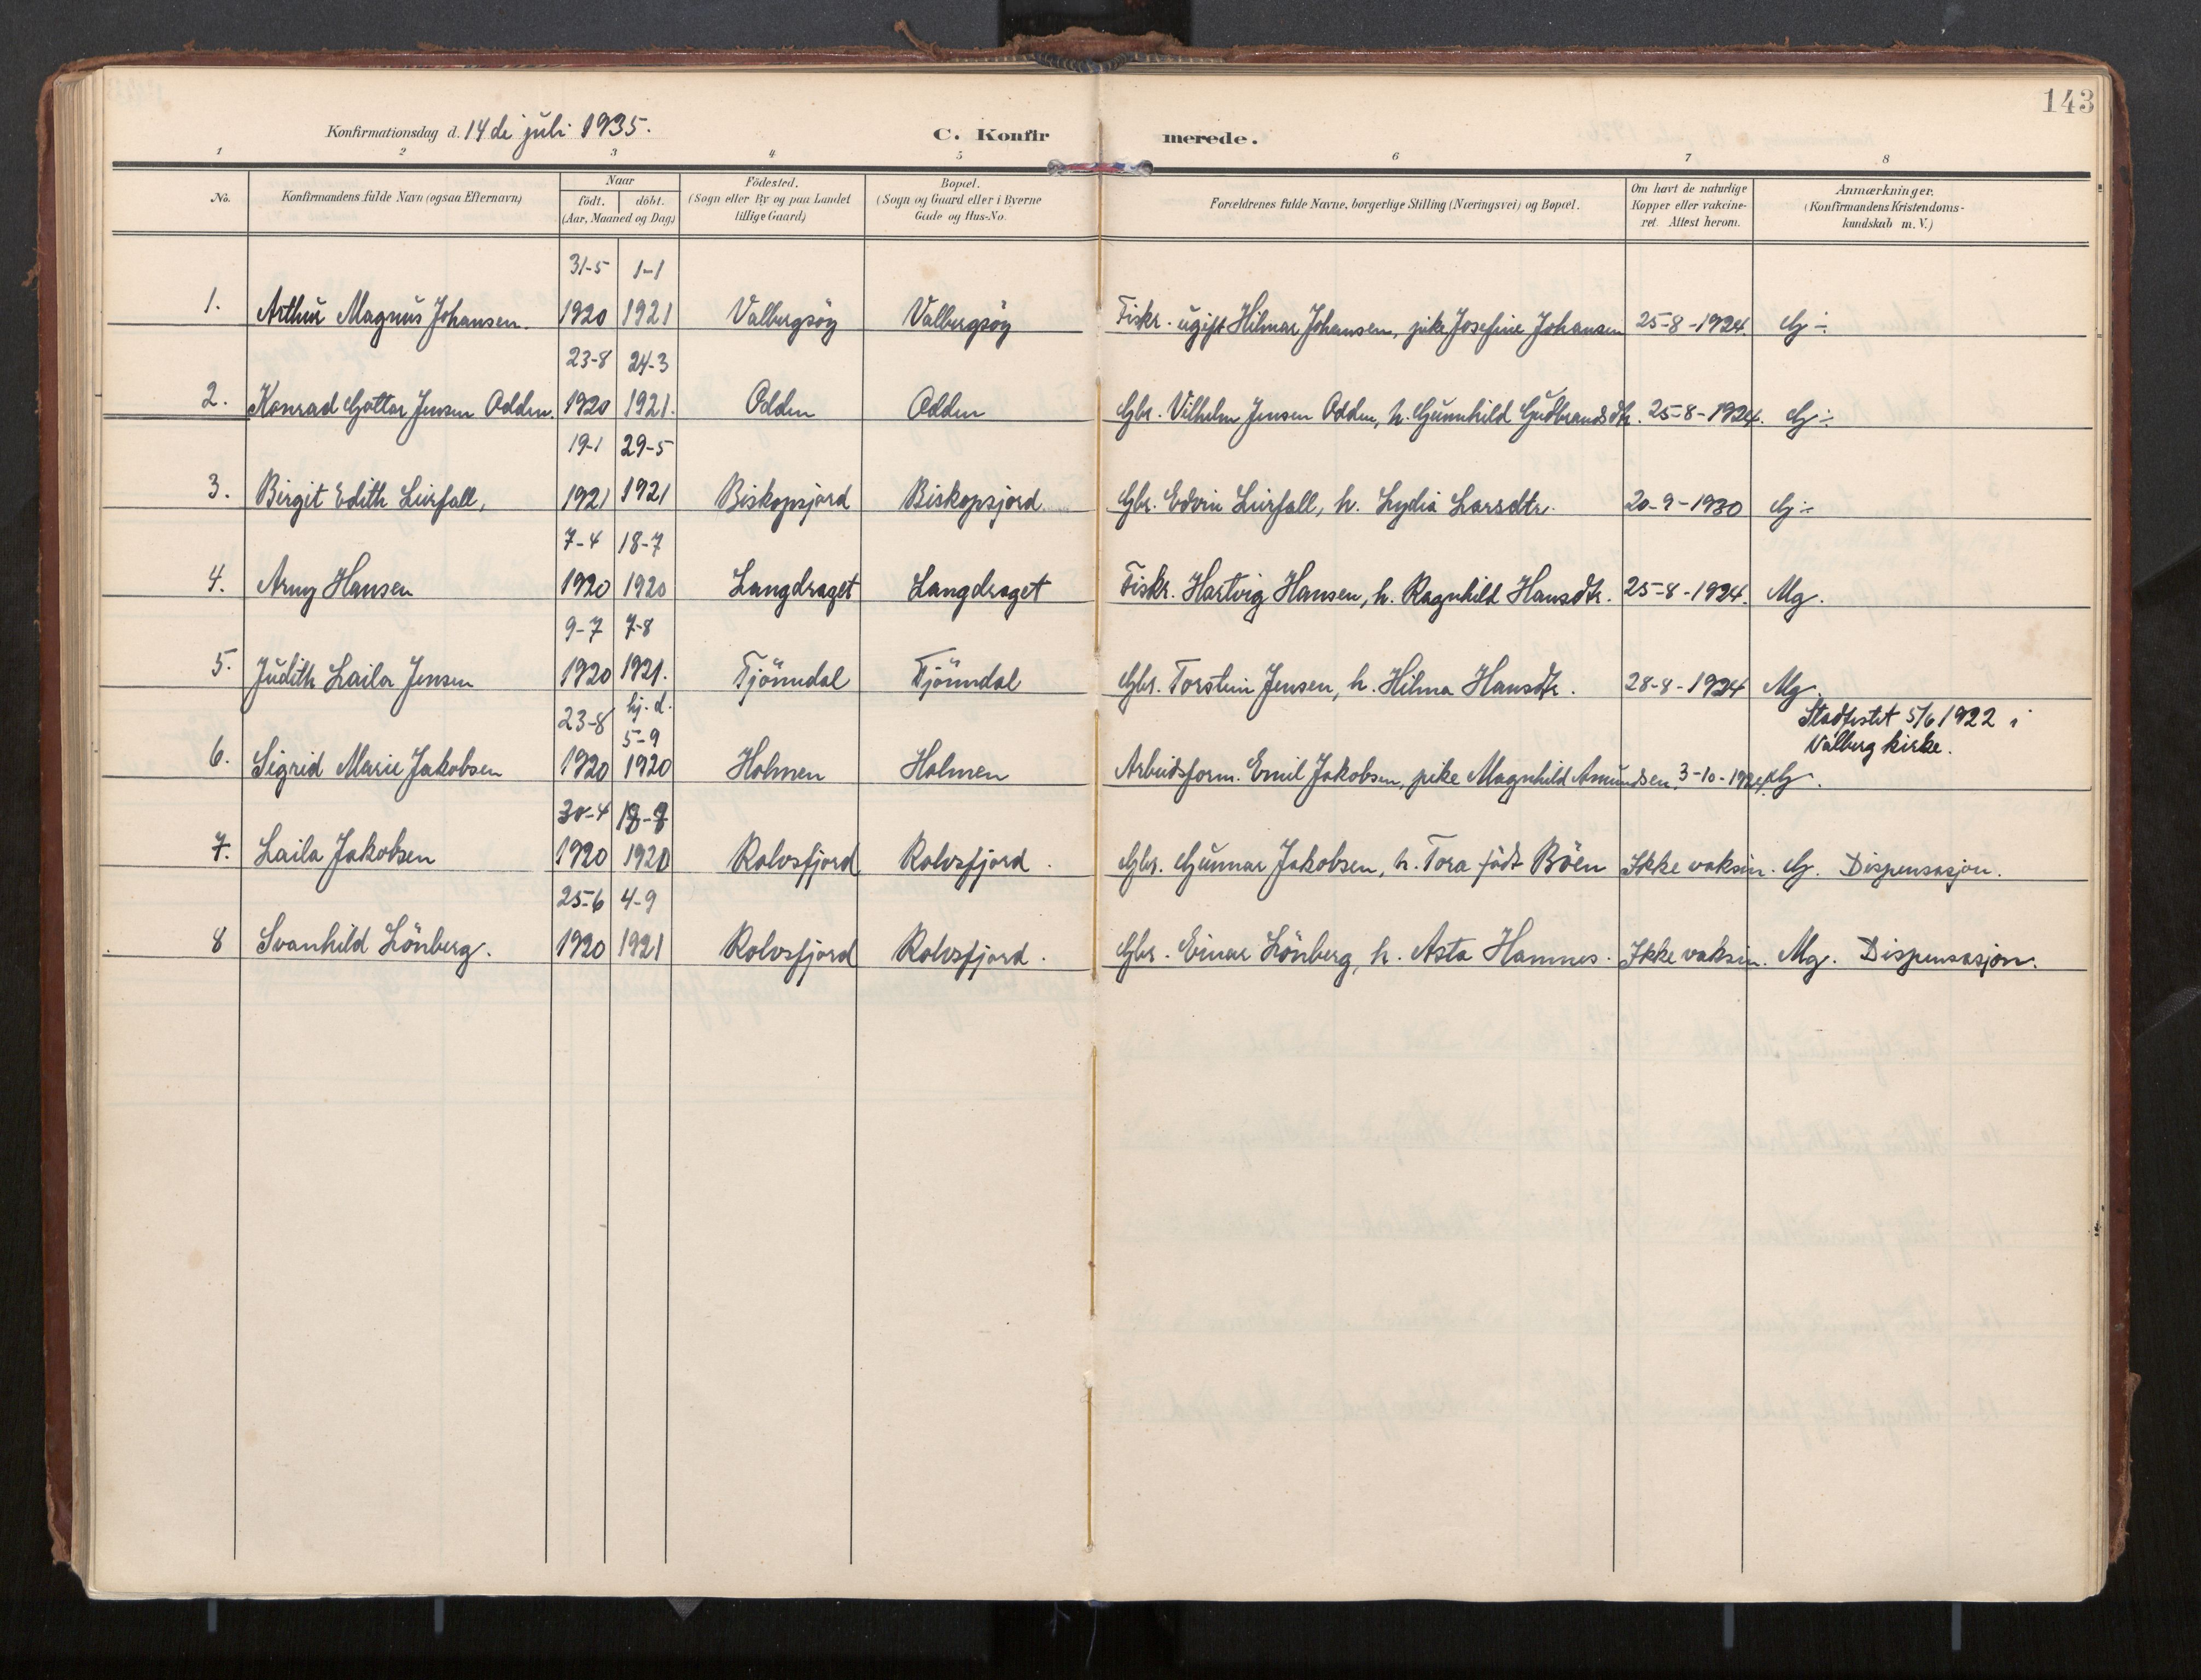 143
Konfirmationsdag d. 14de juli 1935. C. Konfirmerede.
1 2 3 4 5 6 7 8
No. Konfirmandens fulde Navn (ogsaa Efternavn) Naar födt. döbt. (Aar, Maaned og Dag) Födested. (Sogn eller By og paa Landet tillige Gaard) Bopæl. (Sogn og Gaard eller i Byerne Gade og Hus-No. Forældrenes fulde Navne, borgerlige Stilling (Næringsvei) og Bopæl. Om havt de naturlige Kopper eller vakcineret. Attest herom. Anmærkninger. (Konfirmandens Kristendomskundskab m. V.)
31-5 1-1
1. Arthur Magnus Johansen. 1920 1921 Valbergsöy Valbergsöy Fiskr. ugift Hilmar Johansen, pike Josefine Johansen 25-8-1924. G÷
23-8 24-3
2. Konrad Gottar Jensen Odden. 1920 1921. Odden Odden Gbr. Vilhelm Jensen Odden, h. Gunnhild Gudbrandsdtr. 25-8-1924. G÷
19-1 29-5
3. Birgit Edith Leirfall, 1921 1921 Biskopsjord Biskopsjord Gbr. Edvin Leirfall, h. Lydia Larsdtr. 20-9-1930 G÷
7-4 18-7
4. Arny Hansen 1920 1920 Langdraget Langdraget Fiskr. Hartvig Hansen, h. Ragnhild Hansdtr. 25-8-1924. Mg.
9-7 7-8
5. Judith Laila Jensen 1920 1921. Tjönndal Tjönndal Gbr. Torstein Jensen, h. Hilma Hansdtr. 28-8-1924 Mg.
23-8 hj. d. 5-9 Stadfestet 5/6 1922 i
Valberg kirke.
6. Sigrid Marie Jakobsen 1920 1920 Holmen Holmen Arbeidsform. Emil Jakobsen, pike Magnhild Amundsen. 3-10-1924. G.
30-4 18-8
7. Laila Jakobsen 1920 1920 Rolvsfjord Rolvsfjord. Gbr. Gunnar Jakobsen, h. Tora födt Böen Ikke vaksin. G. Dispensasjon.
25-6 4-9
8 Svanhild Lönberg. 1920 1921 Rolvsfjord Rolvsfjord. Gbr. Einar Lönberg, h. Asta Hamnes. Ikke vaksin. Mg. Dispensasjon.